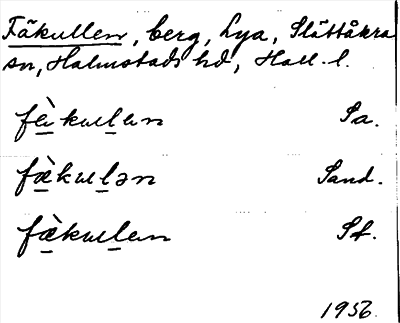 Fäkullen, berg, Lya, Slättåkra
sn, Halmstads hd, Hall. l.
fè̱kuḻan Sa.
fæ̱̀kuḻən Sand.
fæ̱̀kuḻan St.
1956.